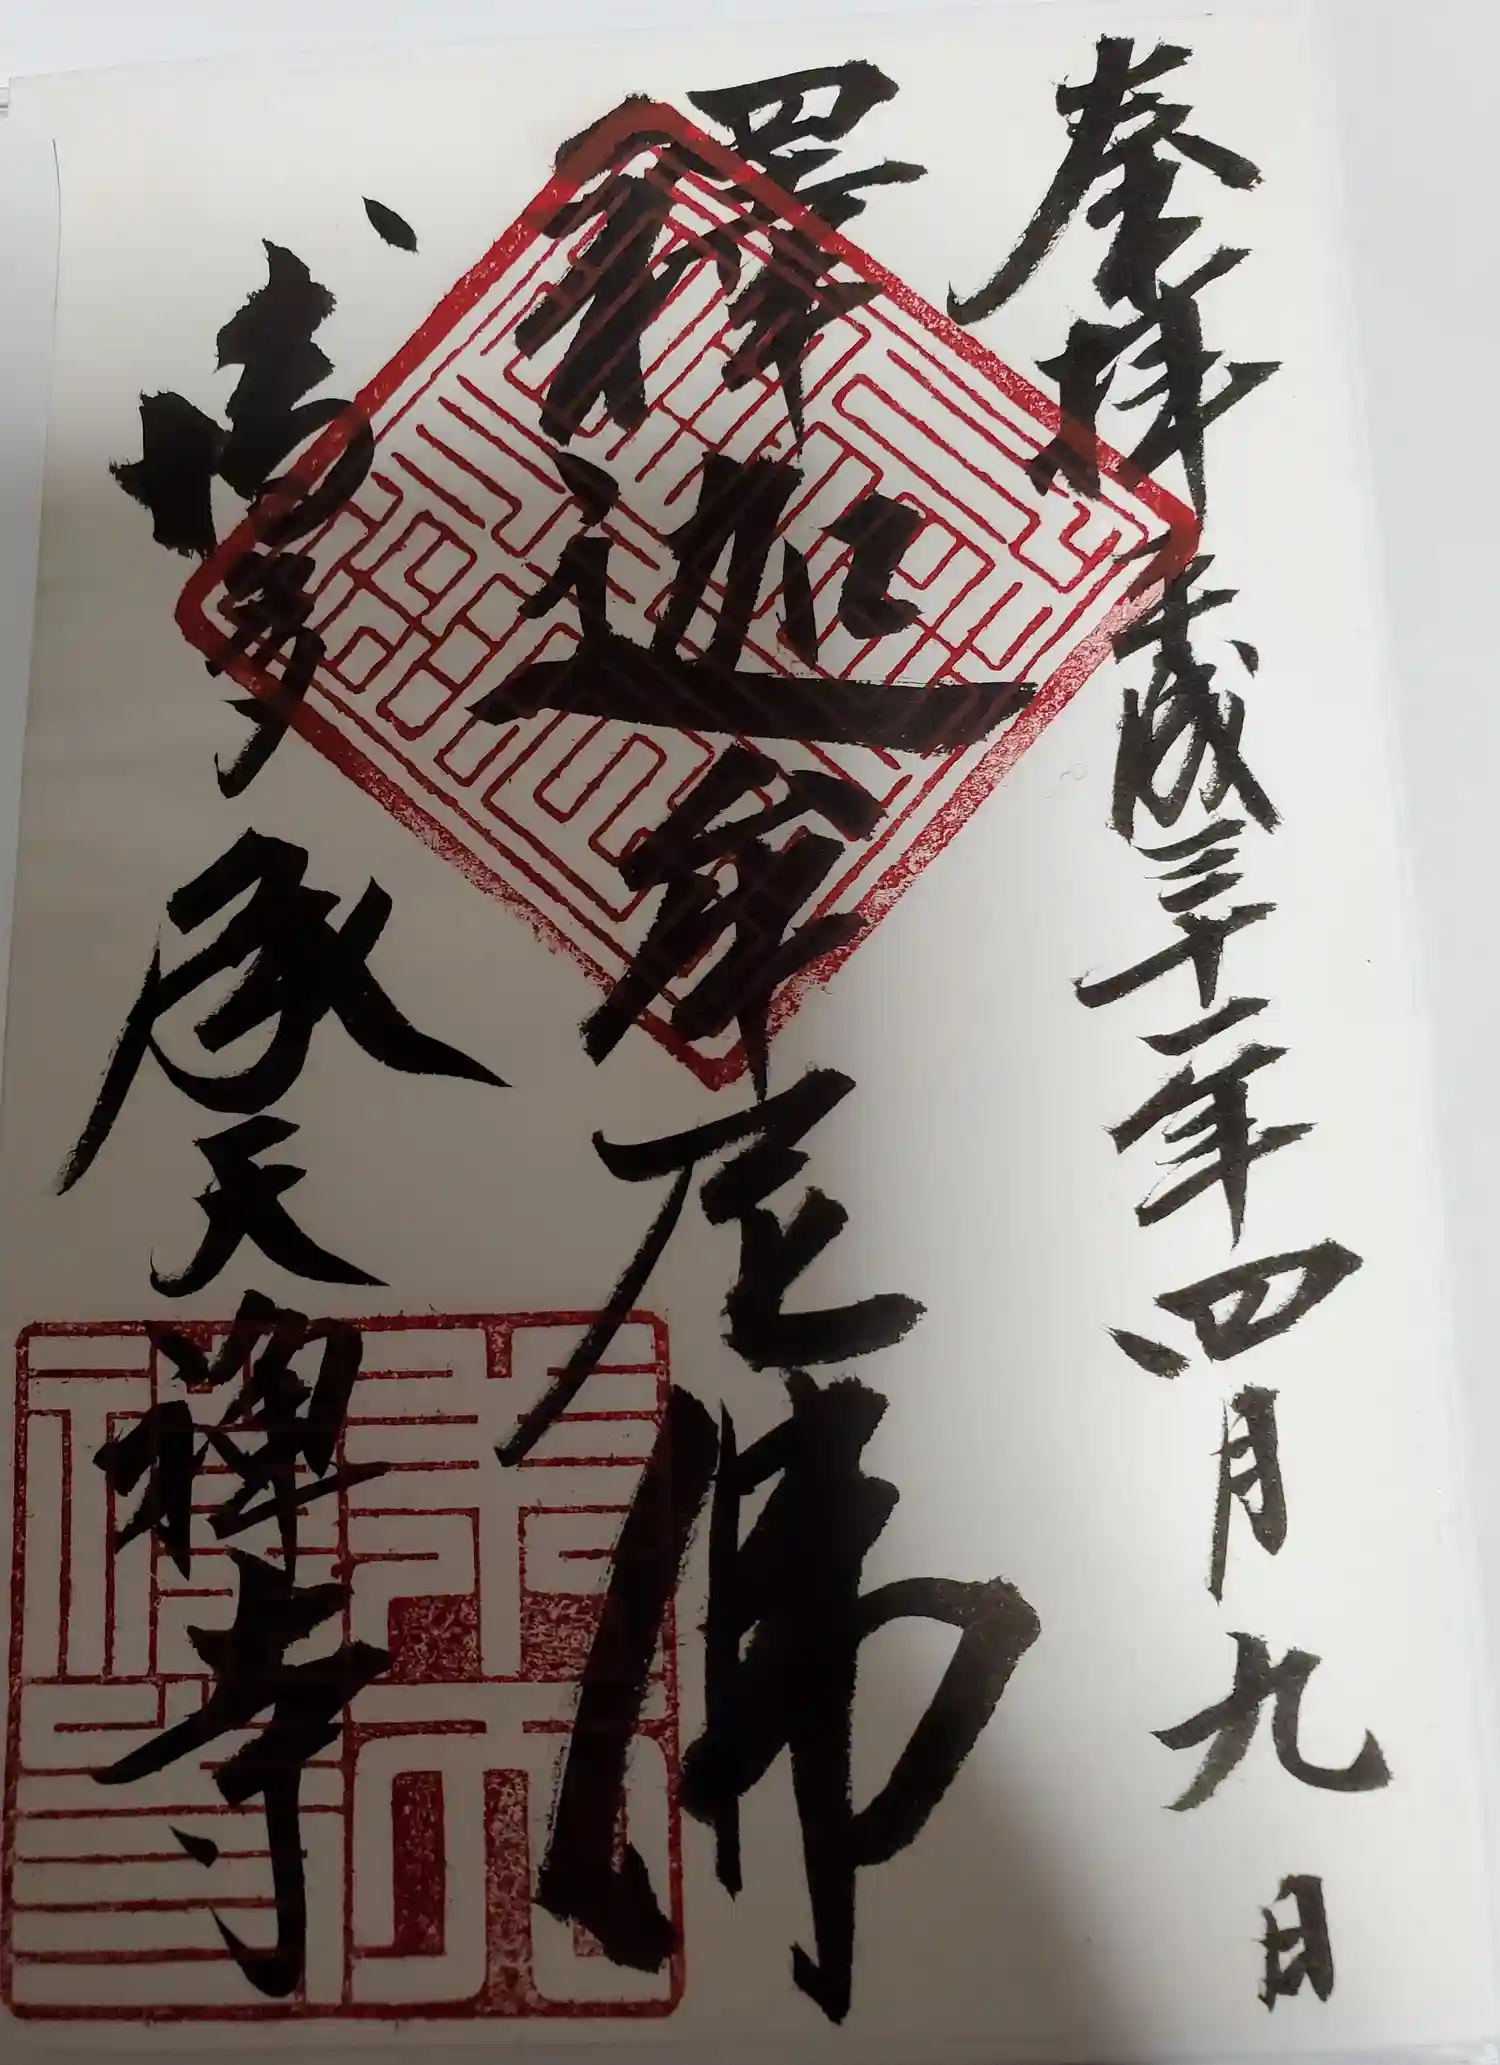 奉拝 平成三十一年四月九日
釋迦牟尼佛
博多 承天禅寺
承天禪寺